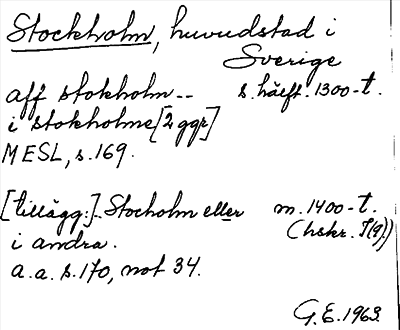 Stockholm, huvudstad i
Sverige
aff stokholm -- s. hälft. 1300-t.
i stokholme [2 ggr]
MESL, s. 169.
[tillägg:]. Stocholm eller m. 1400-t.
i andra. (hskr. I(9))
a.a. s. 170, not 34.
G.E. 1963.